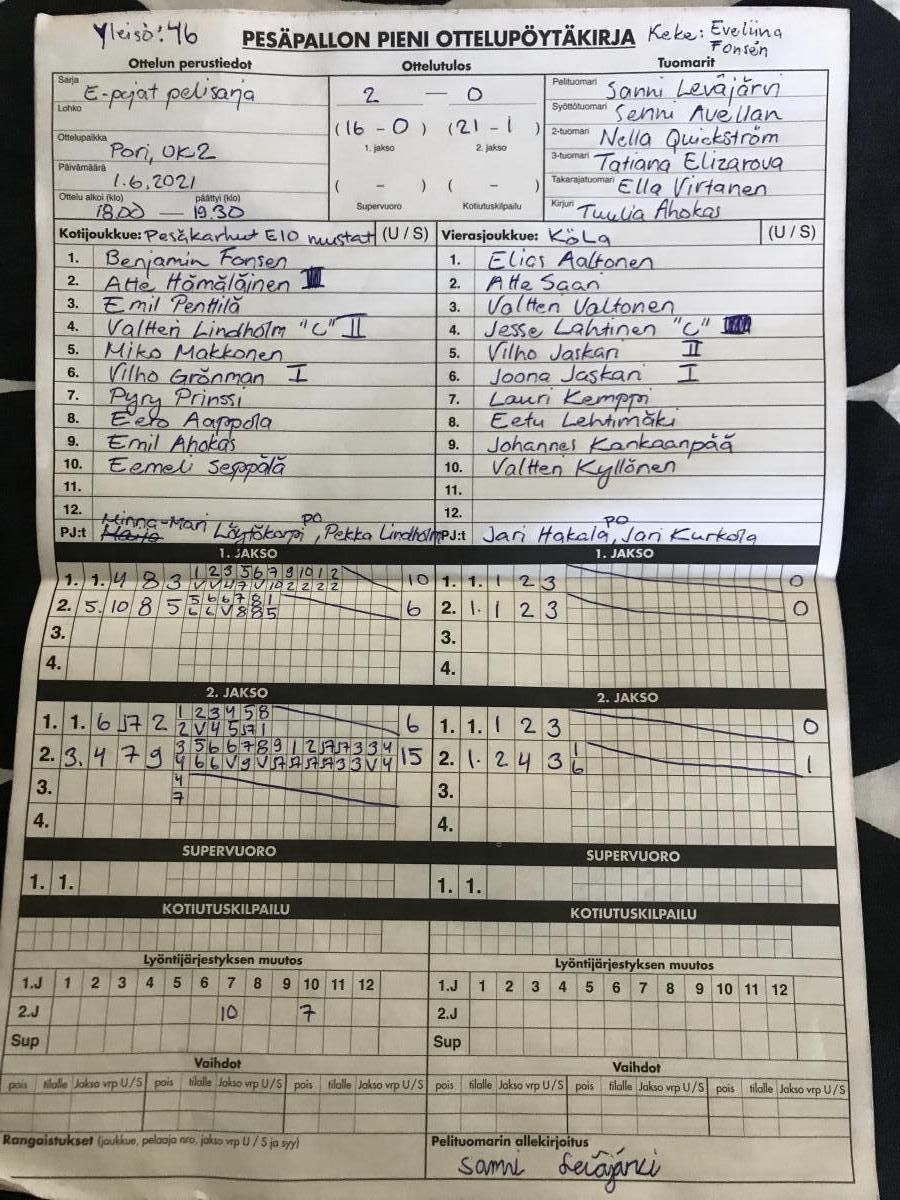 Yleisö: 46
PESÄPALLON PIENI OTTELUPÖYTÄKIRJA
Keke: Eveliina Fonsén
Ottelun perustiedot
Ottelutulos
Tuomarit
Sarja E-pojat pelisarja
Lohko
Ottelupaikka Pori, UK2
Päivämäärä 1.6.2021
Ottelu alkoi (klo) päättyi (klo)
18.00 — 19.30
2 — 0
(16 - 0) (21 - 1)
1. jakso 2. jakso
( - ) ( - )
Supervuoro Kotiutuskilpailu
Pelituomari Sanni Leväjärvi
Syöttötuomari Senni Avellan
2-tuomari Nella Quickström
3-tuomari Tatiana Elizarova
Takarajatuomari Ella Virtanen
Kirjuri Tuulia Ahokas
Kotijoukkue: Pesäkarhut E10 mustat (U / S)
1. Benjamin Fonsen
2. Atte Hämäläinen
3. Emil Penttilä
4. Valtteri Lindholm "C" II
5. Miko Makkonen
6. Vilho Grönman I
7. Pyry Prinssi
8. Eero Aappola
9. Emil Ahokas
10. Eemeli Seppälä
11.
12.
PJ:t Minna-Mari Löytökorpi, PO Pekka Lindholm
Vierasjoukkue: KöLa (U / S)
1. Elias Aaltonen
2. Atte Saari
3. Valtteri Valtonen
4. Jesse Lahtinen "C"
5. Vilho Jaskari II
6. Joona Jaskari I
7. Lauri Kemppi
8. Eetu Lehtimäki
9. Johannes Kankaanpää
10. Valtteri Kyllönen
11.
12.
PJ:t Jari Hakala, PO Jari Kurkola
1. JAKSO
1. 1. 4 8 3 1 2 3 5 6 7 9 10 1 2 10
V V 4 7 V 10 2 2 2 2
2. 5. 10 8 5 5 6 6 7 8 1 6
6 6 V 8 8 5
3.
4.
1. JAKSO
1. 1. 1 2 3 0
2. 1. 1 2 3 0
3.
4.
2. JAKSO
1. 1. 6 J7 2 1 2 3 4 5 8 6
2 V 4 5 J7 1
2. 3. 4 7 9 3 5 6 6 7 8 9 1 2 J7 J7 3 3 4 15
4 6 6 V 9 V J7 J7 J7 J7 3 3 V 4
3. 4
7
4.
2. JAKSO
1. 1. 1 2 3 0
2. 1. 2 4 3 1 1
6
3.
4.
SUPERVUORO
1. 1.
SUPERVUORO
1. 1.
KOTIUTUSKILPAILU
KOTIUTUSKILPAILU
Lyöntijärjestyksen muutos
1.J 1 2 3 4 5 6 7 8 9 10 11 12
2.J 10 7
Sup
Lyöntijärjestyksen muutos
1.J 1 2 3 4 5 6 7 8 9 10 11 12
2.J
Sup
Vaihdot
pois tilalle Jakso vrp U / S pois tilalle Jakso vrp U / S pois tilalle Jakso vrp U / S
Vaihdot
pois tilalle Jakso vrp U / S pois tilalle Jakso vrp U / S pois tilalle Jakso vrp U / S
Rangaistukset (joukkue, pelaaja nro, jakso vrp U / S ja syy)
Pelituomarin allekirjoitus
Sanni Leväjärvi